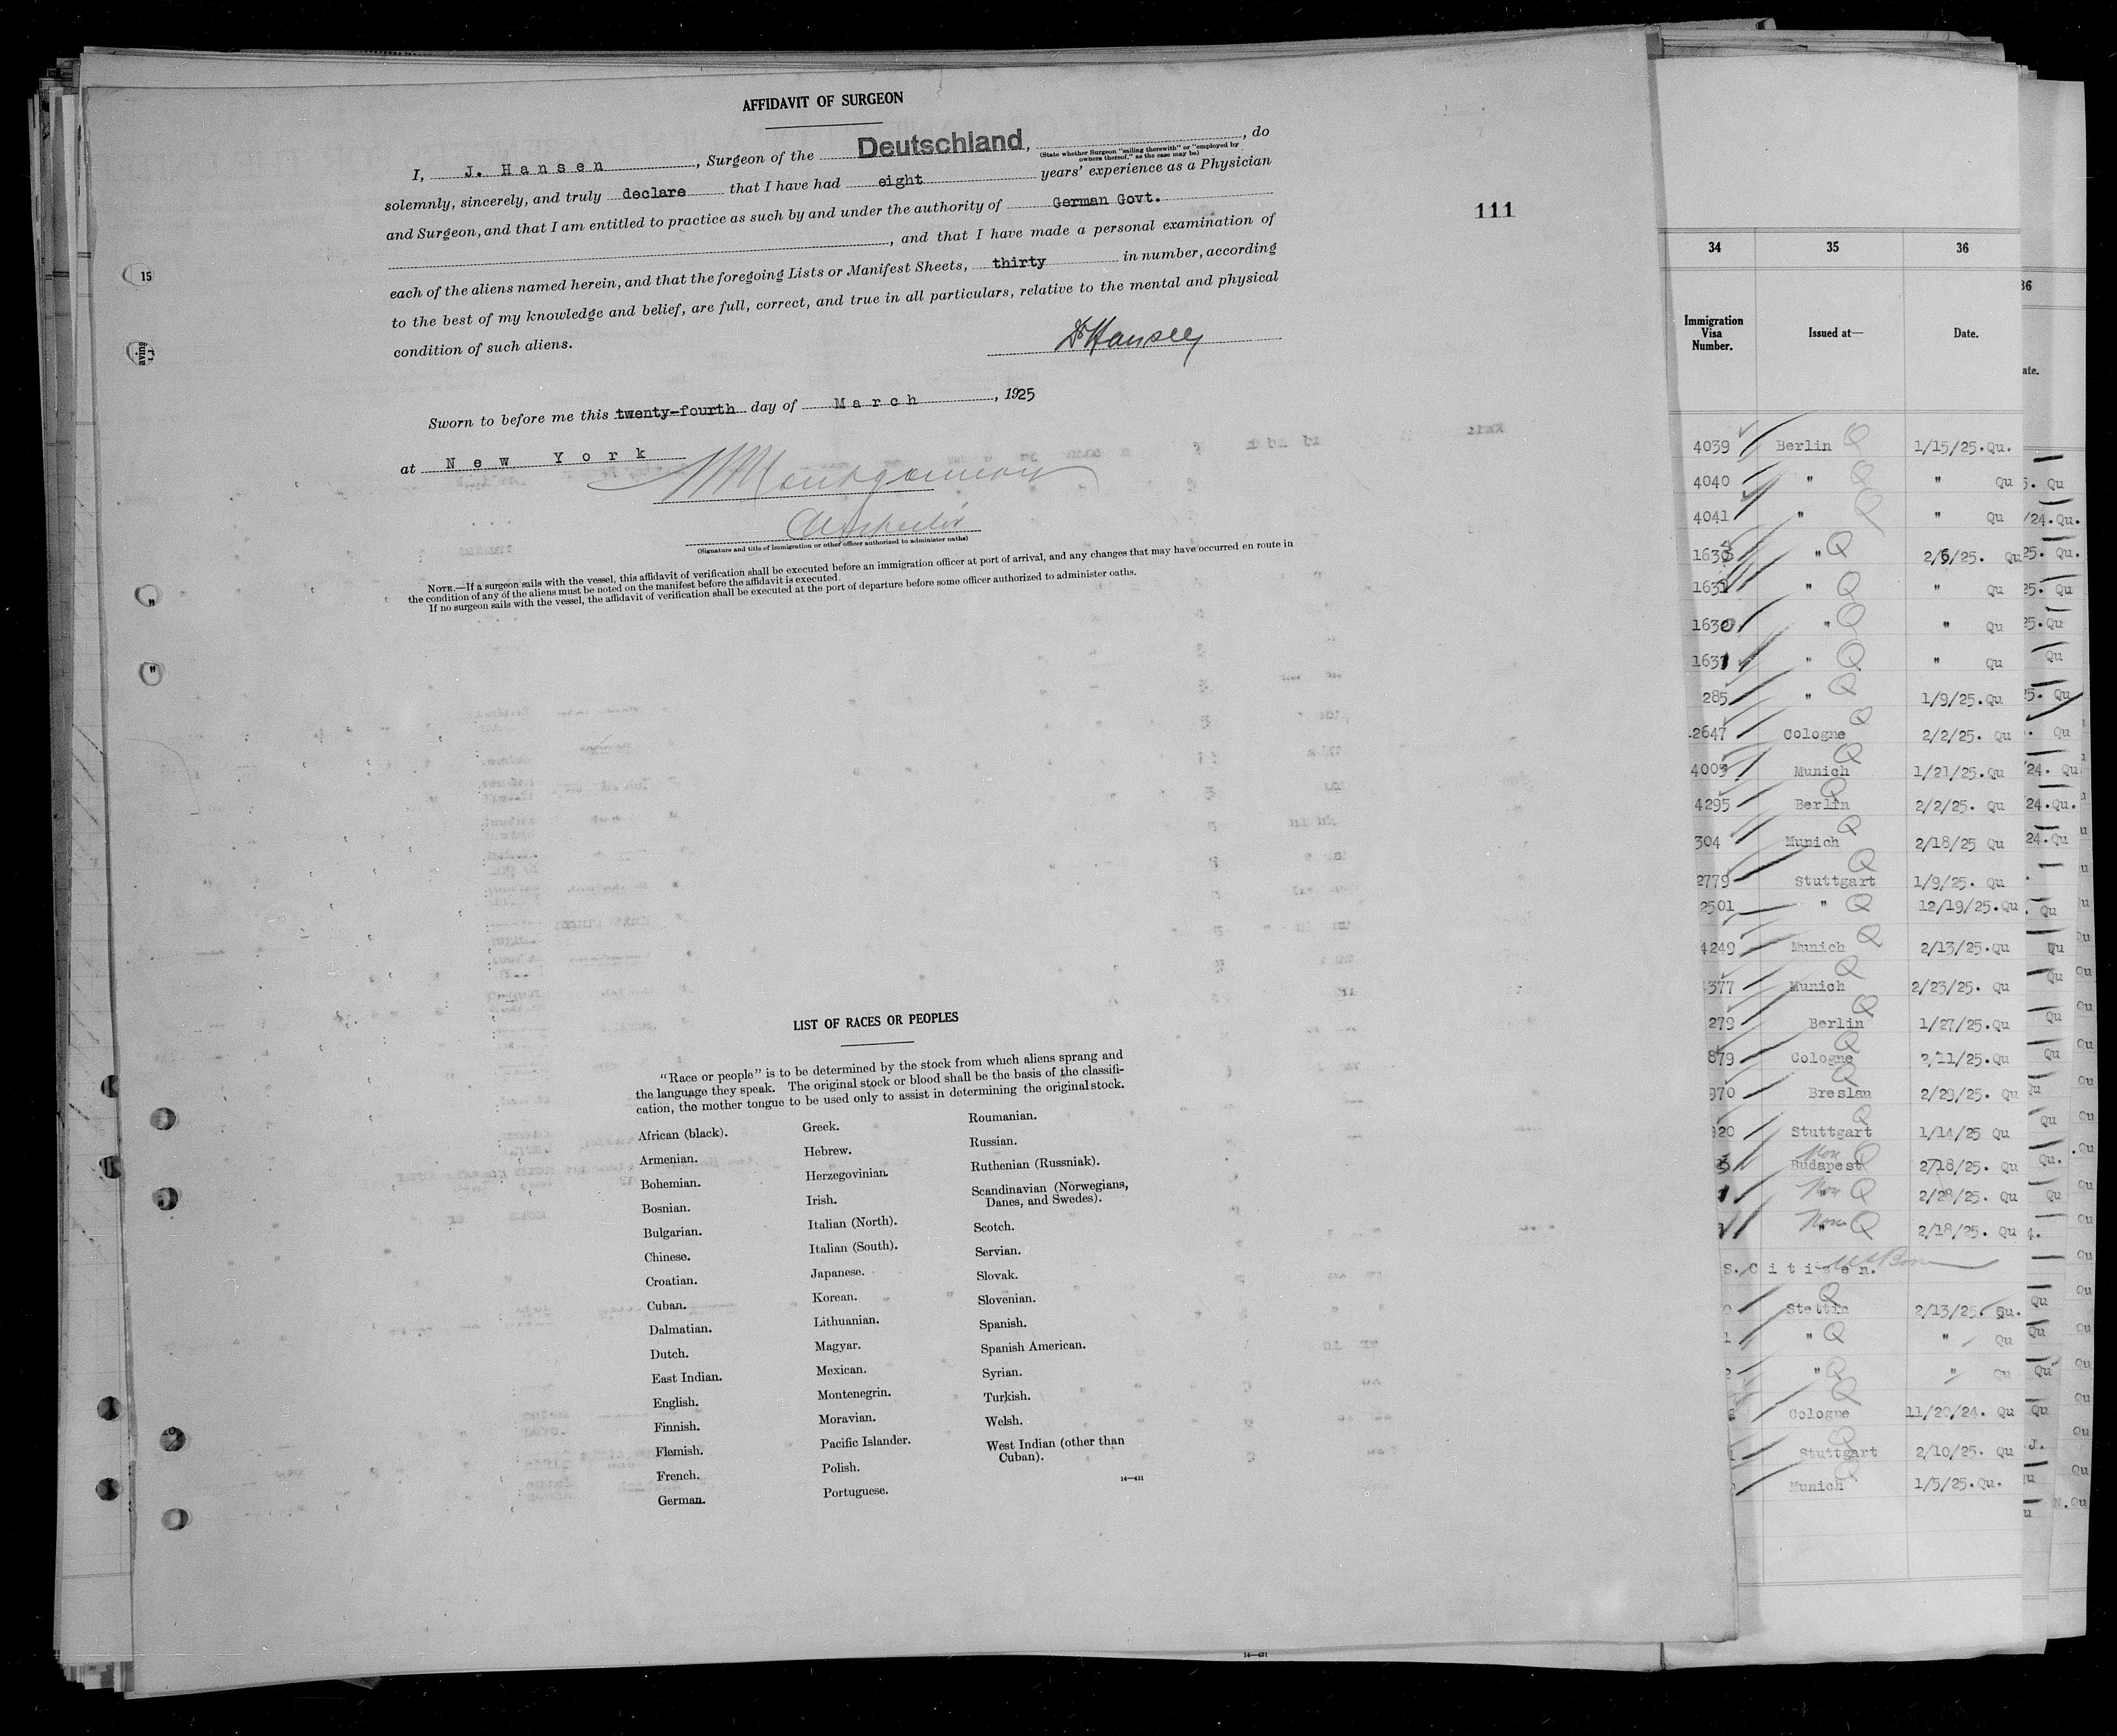 AFFIDAVIT OF SURGEON
I, J. Hansen, Surgeon of the Deutschland, , do
(State whether Surgeon "sailing therewith" or "employed by
owners thereof," as the case may be)
solemnly, sincerely, and truly declare that I have had eight years' experience as a Physician
and Surgeon, and that I am entitled to practice as such by and under the authority of German Govt.
, and that I have made a personal examination of
each of the aliens named herein, and that the foregoing Lists or Manifest Sheets, thirty in number, according
to the best of my knowledge and belief, are full, correct, and true in all particulars, relative to the mental and physical
condition of such aliens.
Sworn to before me this twenty-fourth day of March, 1925
at New York
(Signature and title of immigration or other officer authorized to administer oaths)
NOTE.—If a surgeon sails with the vessel, this affidavit of verification shall be executed before an immigration officer at port of arrival, and any changes that may have occurred en route in
the condition of any of the aliens must be noted on the manifest before the affidavit is executed.
If no surgeon sails with the vessel, the affidavit of verification shall be executed at the port of departure before some officer authorized to administer oaths.
111
15
LIST OF RACES OR PEOPLES
"Race or people" is to be determined by the stock from which aliens sprang and
the language they speak. The original stock or blood shall be the basis of the classifi-
cation, the mother tongue to be used only to assist in determining the original stock.
African (black).
Armenian.
Bohemian.
Bosnian.
Bulgarian.
Chinese.
Croatian.
Cuban.
Dalmatian.
Dutch.
East Indian.
English.
Finnish.
Flemish.
French.
German.
Greek.
Hebrew.
Herzegovinian.
Irish.
Italian (North).
Italian (South).
Japanese.
Korean.
Lithuanian.
Magyar.
Mexican.
Montenegrin.
Moravian.
Pacific Islander.
Polish.
Portuguese.
Roumanian.
Russian.
Ruthenian (Russniak).
Scandinavian (Norwegians,
Danes, and Swedes).
Scotch.
Servian.
Slovak.
Slovenian.
Spanish.
Spanish American.
Syrian.
Turkish.
Welsh.
West Indian (other than
Cuban).
14—431
34 35 36
Immigration
Visa
Number.
Issued at—
Date.
4039 Berlin Q 1/15/25. Qu.
4040 " Q " Qu
4041 " Q " Qu
" Q 2/6/25. Qu
1631 " Q " Qu
1632 " Q " Qu
" Q " Qu
285 " Q 1/9/25. Qu
2647 Cologne Q 2/2/25. Qu
4003 Munich Q 1/21/25. Qu
4295 Berlin Q 2/2/25. Qu
304 Munich Q 2/18/25 Qu
2779 Stuttgart Q 1/9/25. Qu
2501 " Q 12/19/25. Qu
4249 Munich Q 2/13/25. Qu
377 Munich Q 2/23/25. Qu
279 Berlin Q 1/27/25. Qu
879 Cologne Q 2/11/25. Qu
970 Breslau Q Qu
20 Stuttgart Q 1/14/25 Qu
Budapest Non Q 2/18/25. Qu
" Non Q 2/28/25. Qu
" Non Q 2/18/25. Qu
S. Citizen.
Stettin Q 2/13/25. Qu.
1 " Q " Qu
2 " Q " Qu
Cologne Q 11/20/24. Qu
1 Stuttgart Q 2/10/25. Qu
Munich Q 1/5/25. Qu.
14—431